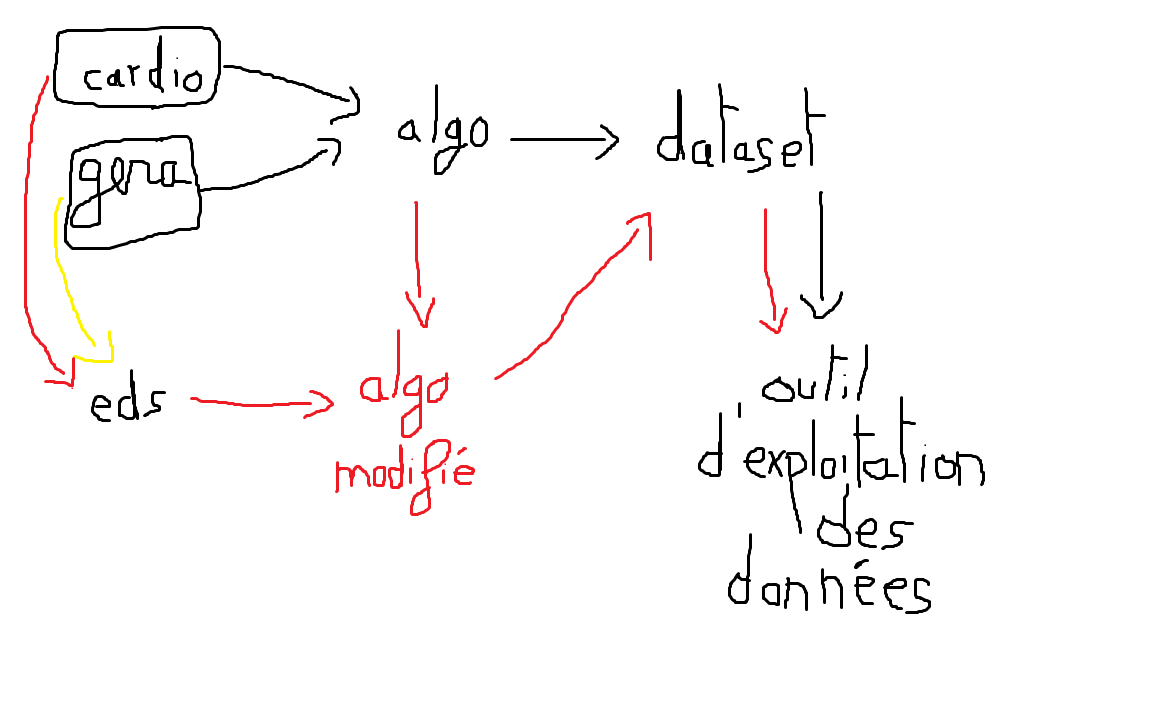 cardio
gena
algo
dataset
eds
algo
modifié
outil
d'exploitation
des
données